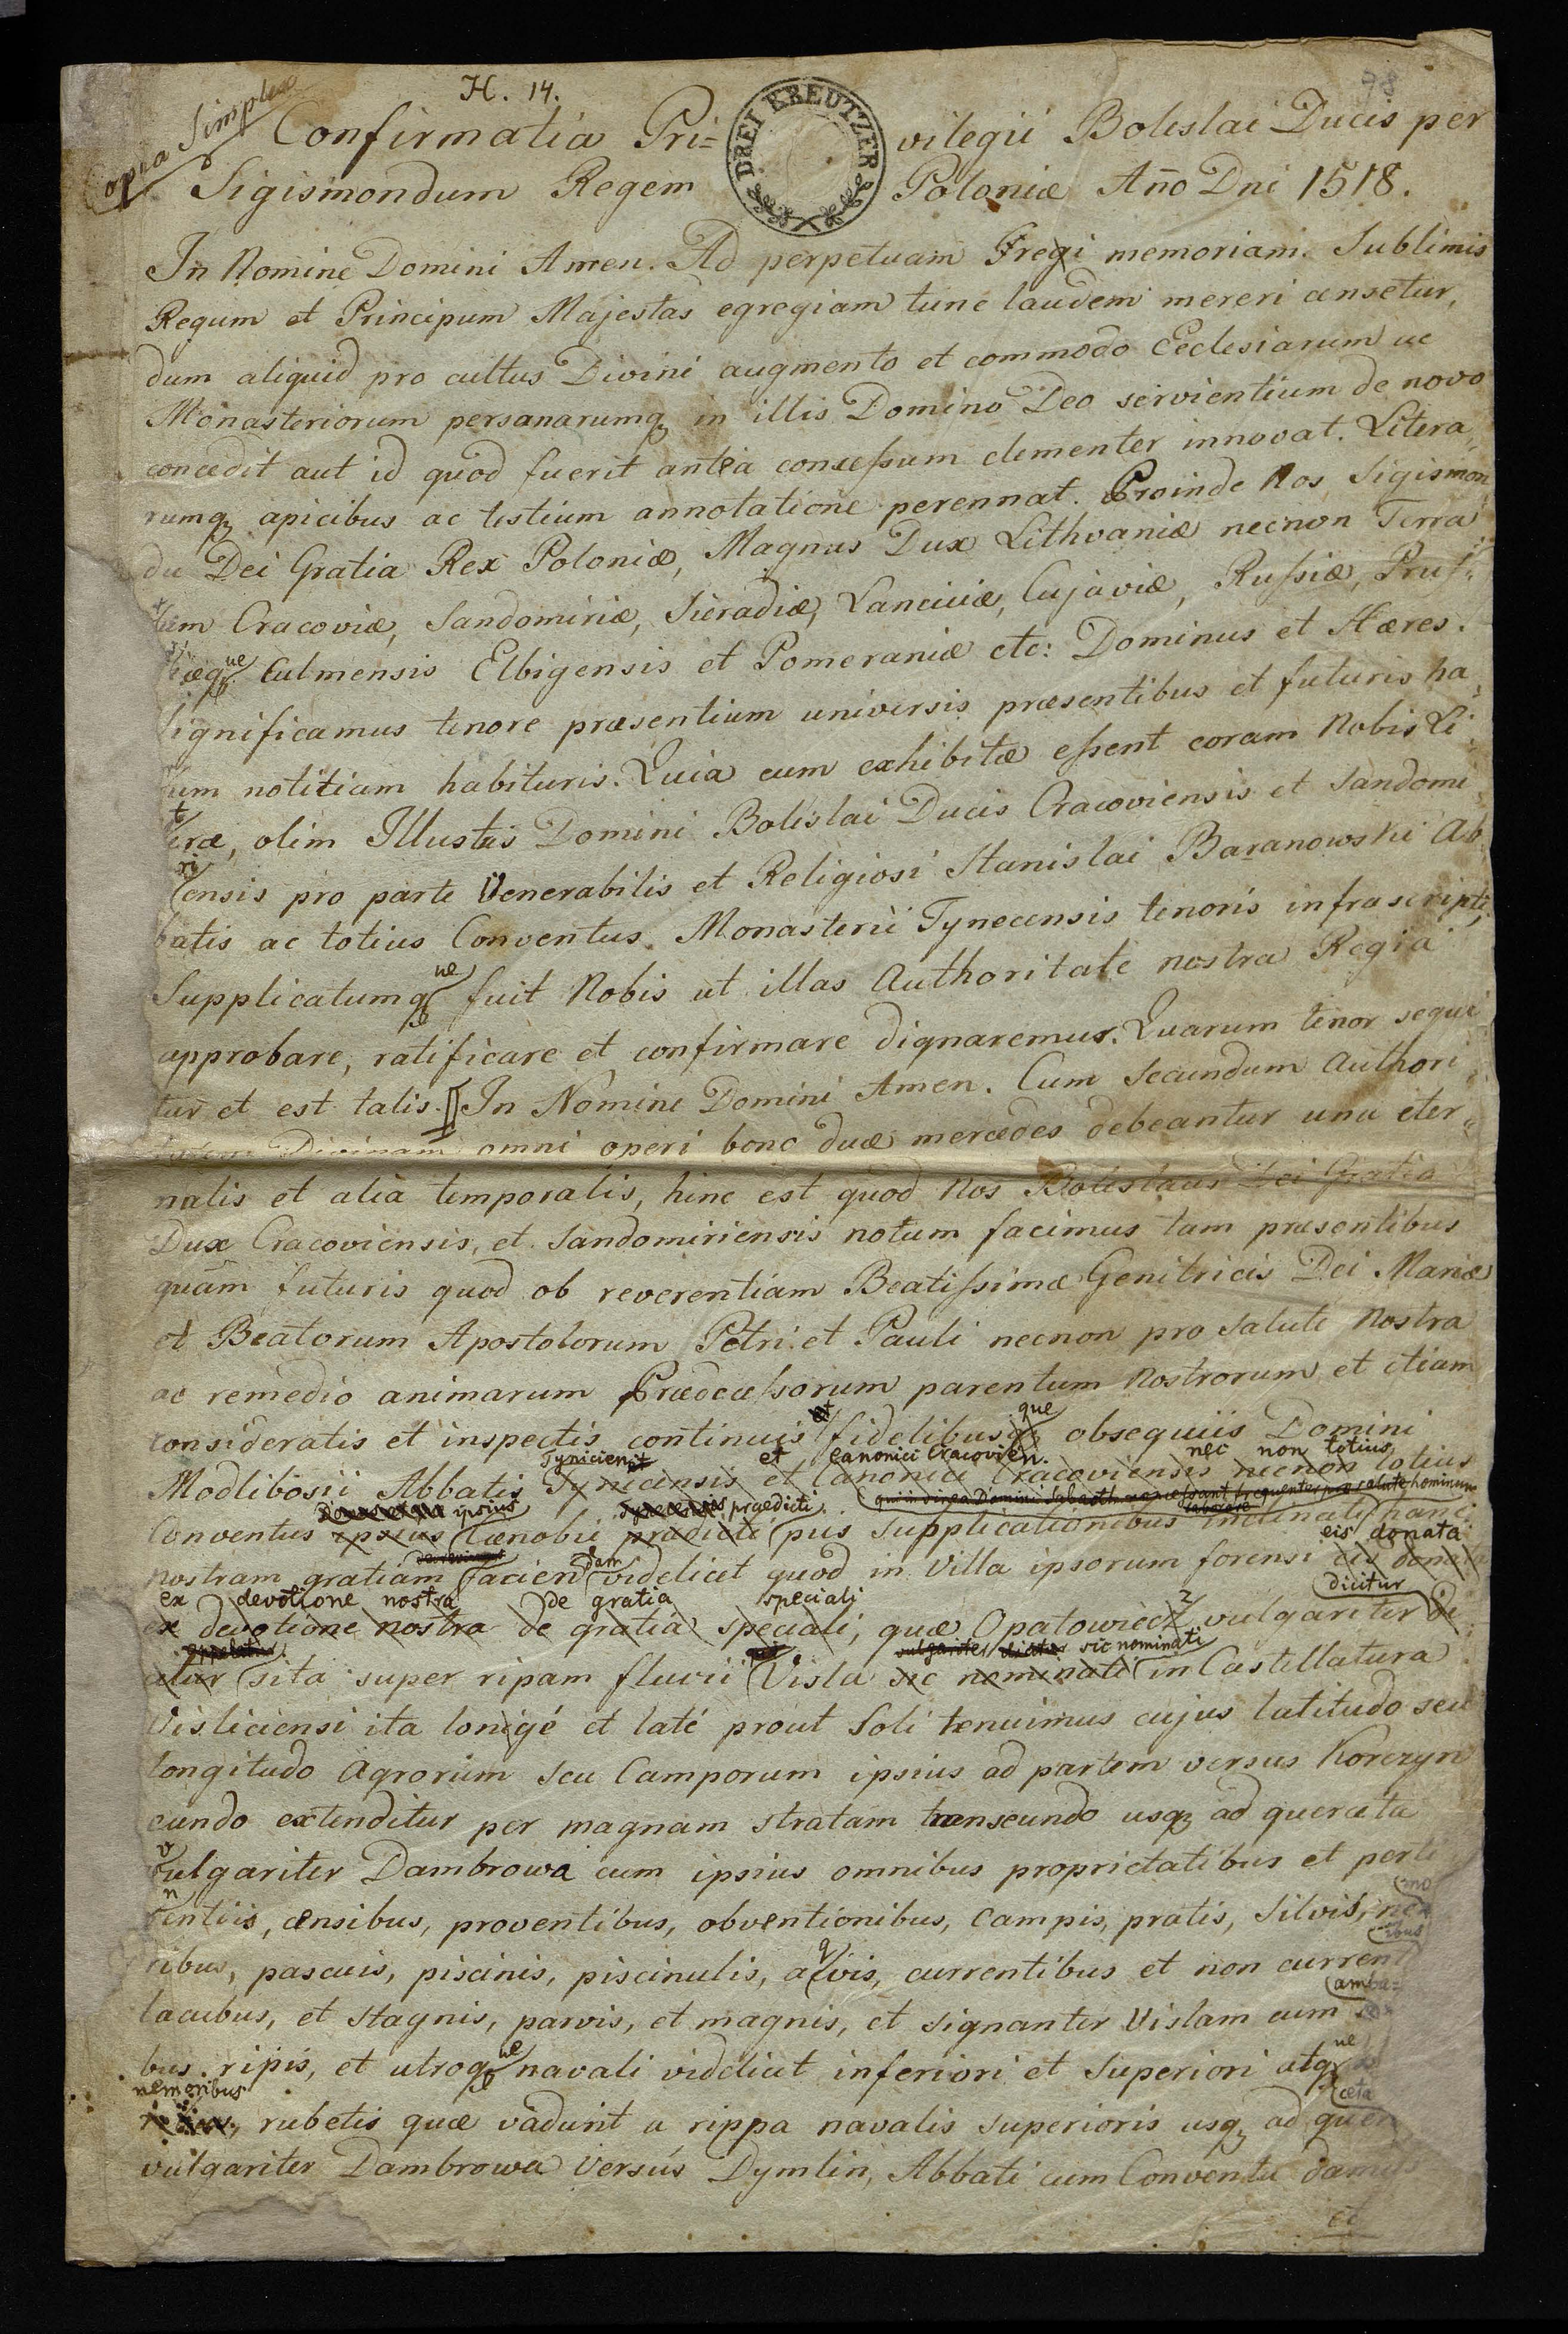 H. 14.
78
Copia Simplex
DREI KREUTZER
Confirmatia Pri= vilegii Boleslai Ducis per
Sigismondum Regem Poloniæ Año Dni 1518.
In Nomine Domini Amen. Ad perpetuam Fregi memoriam. Sublimis
Regum et Principum Majestas egregiam tunc laudem mereri censetur,
dum aliquid pro cultus Divini augmento et commodo Ecclesiarum ac
Monasteriorum personarumq in illis Domino Deo servientium de novo
concedit aut id quod fuerit antea concessum clementer innovat. Litera„
rumq apicibus ac testium annotatione perennat. Proinde Nos Sigismon„
du Dei Gratia Rex Poloniæ, Magnus Dux Lithvaniæ necnon Terra
rum Cracoviæ, Sandomiriæ, Sieradiæ, Lanciciæ, Cujaviæ, Russiæ, Prus„
siæque Culmensis Elbigensis et Pomeraniæ etc: Dominus et Hæres.
Significamus tenore præsentium universis præsentibus et futuris ha„
rum notitiam habituris. Quia cum exhibitæ essent coram Nobis Li„
teræ, olim Illustris Domini Boleslai Ducis Cracoviensis et Sandomi
riensis pro parte Venerabilis et Religiosi Stanislai Baranowski Ab„
batis ac totius Conventus Monasterii Tynecensis tenoris infrascripti,
Supplicatumque fuit Nobis ut illas Authoritate nostra Regia
approbare, ratificare et confirmare dignaremur. Quarum tenor sequi
tur et est talis. In Nomine Domini Amen. Cum Secundum Authori„
tatem Divinam omni operi bono duæ mercedes debeantur una eter„
nalis et alia temporalis, hinc est quod Nos Boleslaus Dei Gratia
Dux Cracoviensis, et Sandomiriensis notum facimus tam præsentibus
quam futuris quod ob reverentiam Beatissimæ Genitricis Dei Mariæ
et Beatorum Apostolorum Petri et Pauli necnon pro Salute Nostra
ac remedio animarum Prædecessorum parentum Nostrorum et etiam
consideratis et inspectis continuis et fidelibusque obsequiis Domini
Tynicien et canonici Cracovien. nec non totius
Modlibosii Abbatis Tynicensis et Canonici Cracoviensis necnon totius
qui in vinea Domini Sabaoth non cessant frequenter pro salute hominum laborare
ipsius prædicti
Conventus ipsius Cænobii prædicti piis Supplicationibus inclinati hanc
eis donata
nostram gratiam faciendam videlicet quod in Villa ipsorum forensi eis donata
ex devotione nostra de gratia speciali dicitur
ex devotione nostra de gratia speciali, quæ Opatowiecz vulgariter di„
appelatur vulgariter dicitur sic nominati
citur sita super ripam fluvii Visla sic nominati in Castellatura
Visliciensi ita longé et laté prout Soli tenuimus cujus latitudo seu
longitudo Agrorum seu Camporum ipsius ad partem versus Korczyn
eundo extenditur per magnam stratam transeundo usq ad querceta
vulgariter Dambrowa cum ipsius omnibus proprietatibus et perti
nentiis, censibus, proventibus, obventionibus, Campis, pratis, Silvis, nemo
ribus, pascuis, piscinis, piscinulis, aqvis, currentibus et non currentibus
lacubus, et stagnis, parvis, et magnis, et signanter Vislam cum amba=
bus ripis, et utroque navali videlicet inferiori et Superiori atque
nemoribus
rubetis quæ vadunt a rippa navalis superioris usq ad querceta
vulgariter Dambrowa Versus Dymlin, Abbati cum Conventu damus
et